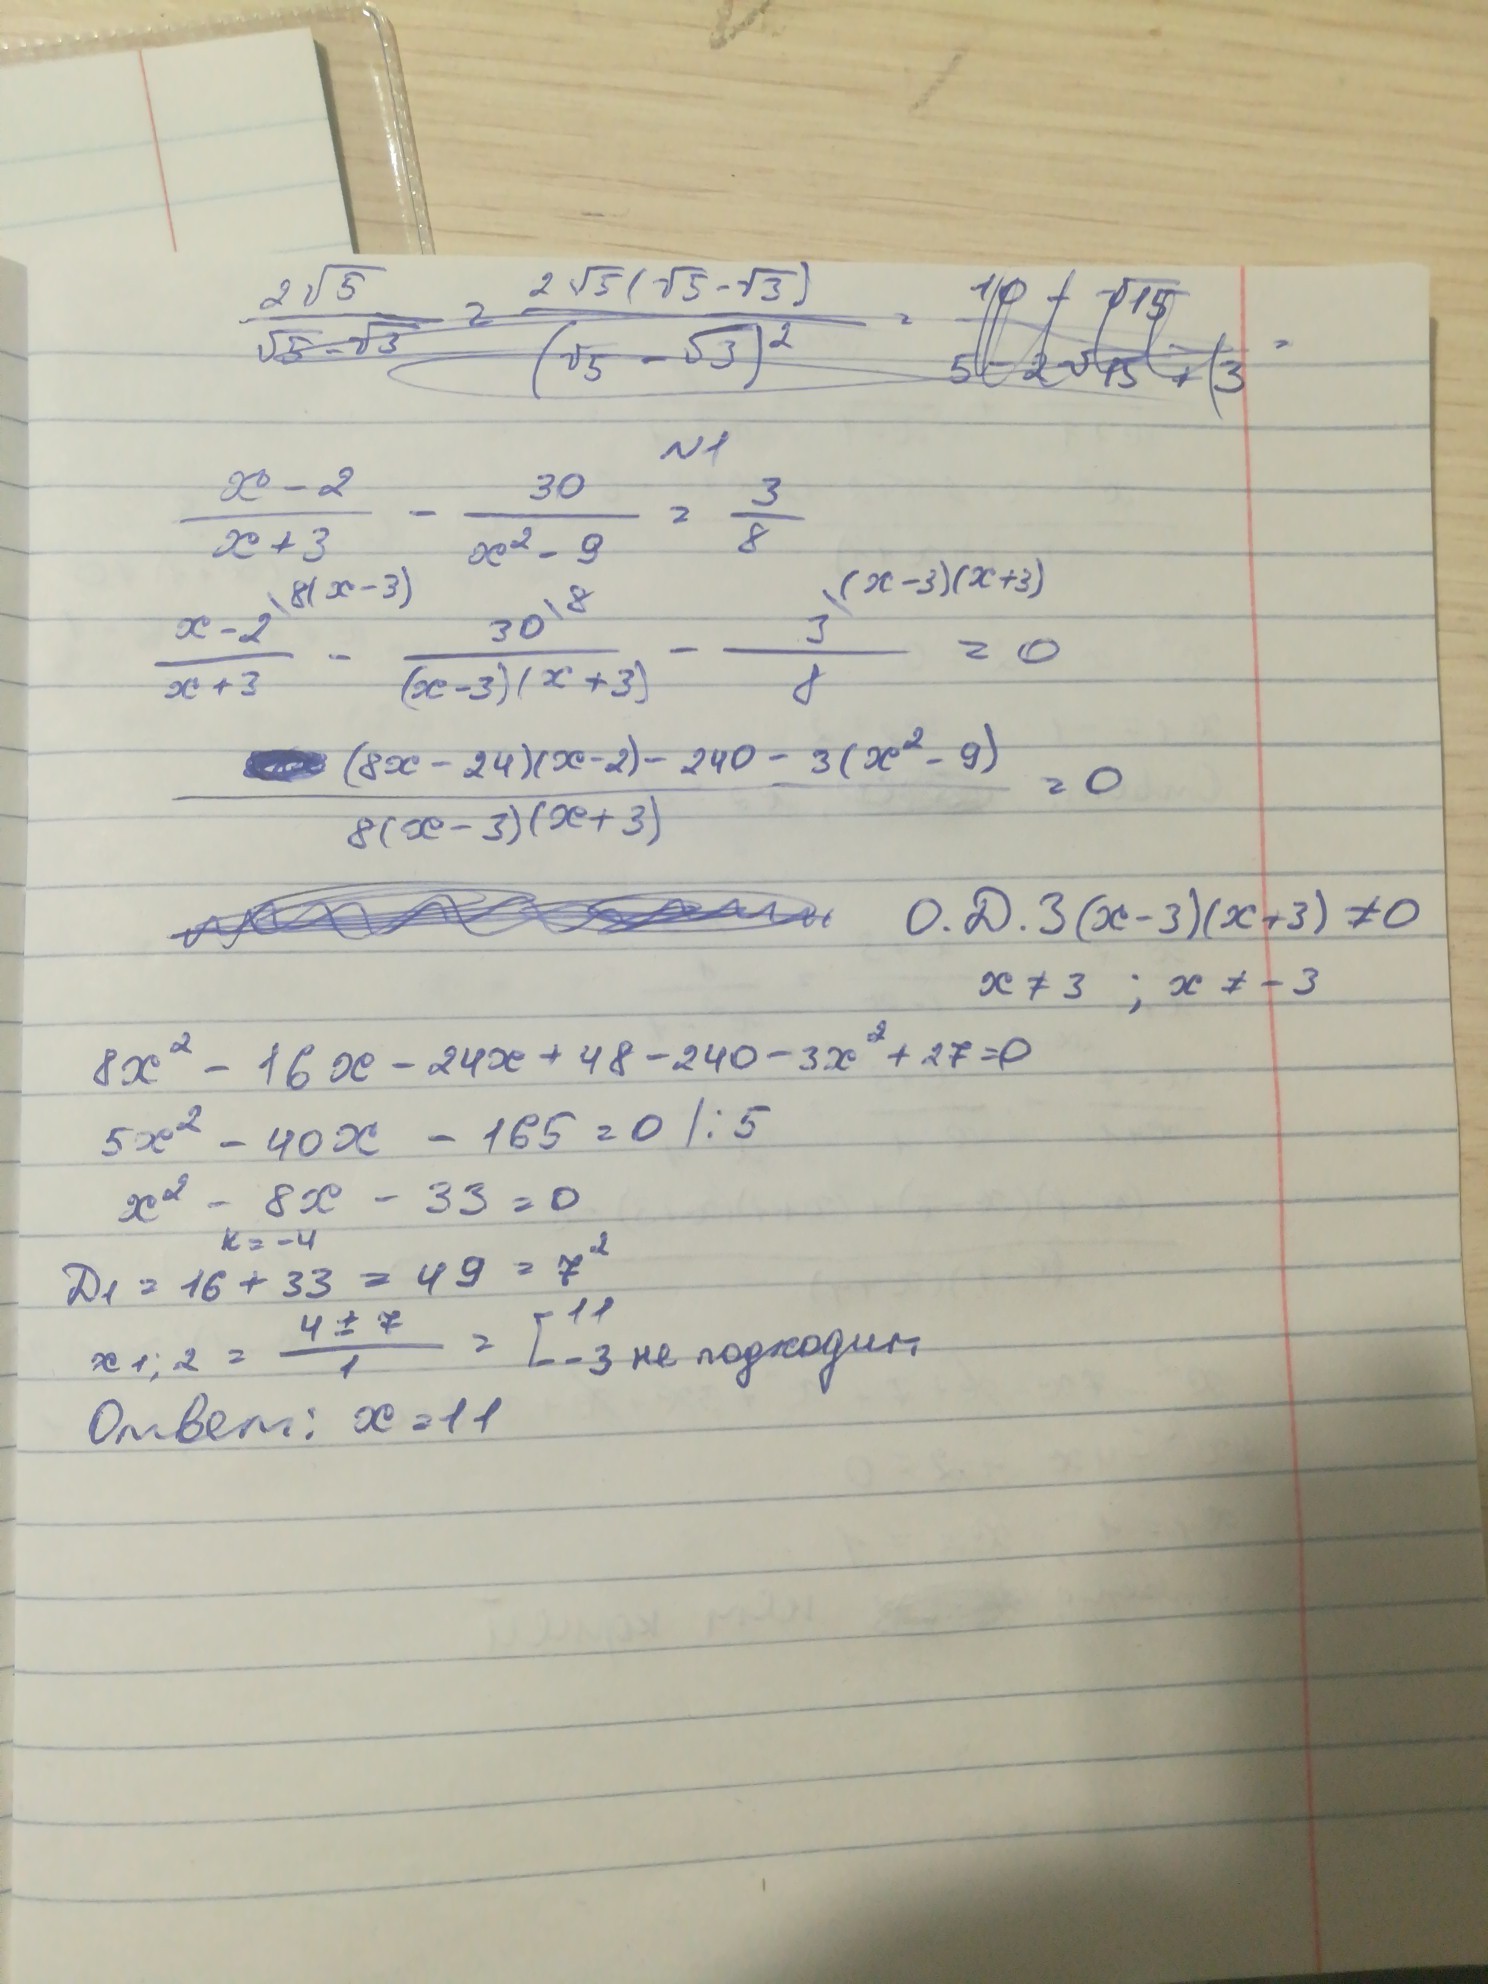 2√5/(√5-√3) = 2√5(√5-√3)/(√5-√3)² = (10-√15)/(5-2√15+3) =
N1
(x-2)/(x+3) - 30/(x²-9) = 3/8
(x-2)/(x+3) \8(x-3) - 30/((x-3)(x+3)) \8 - 3/8 \(x-3)(x+3) = 0
((8x-24)(x-2)-240-3(x²-9))/(8(x-3)(x+3)) = 0
О.Д.З (x-3)(x+3) ≠ 0
x ≠ 3 ; x ≠ -3
8x² - 16x - 24x + 48 - 240 - 3x² + 27 = 0
5x² - 40x - 165 = 0 |:5
x² - 8x - 33 = 0
k = -4
D1 = 16 + 33 = 49 = 7²
x1;2 = (4 ± 7)/1 = [11
-3 не подходит
Ответ: x = 11